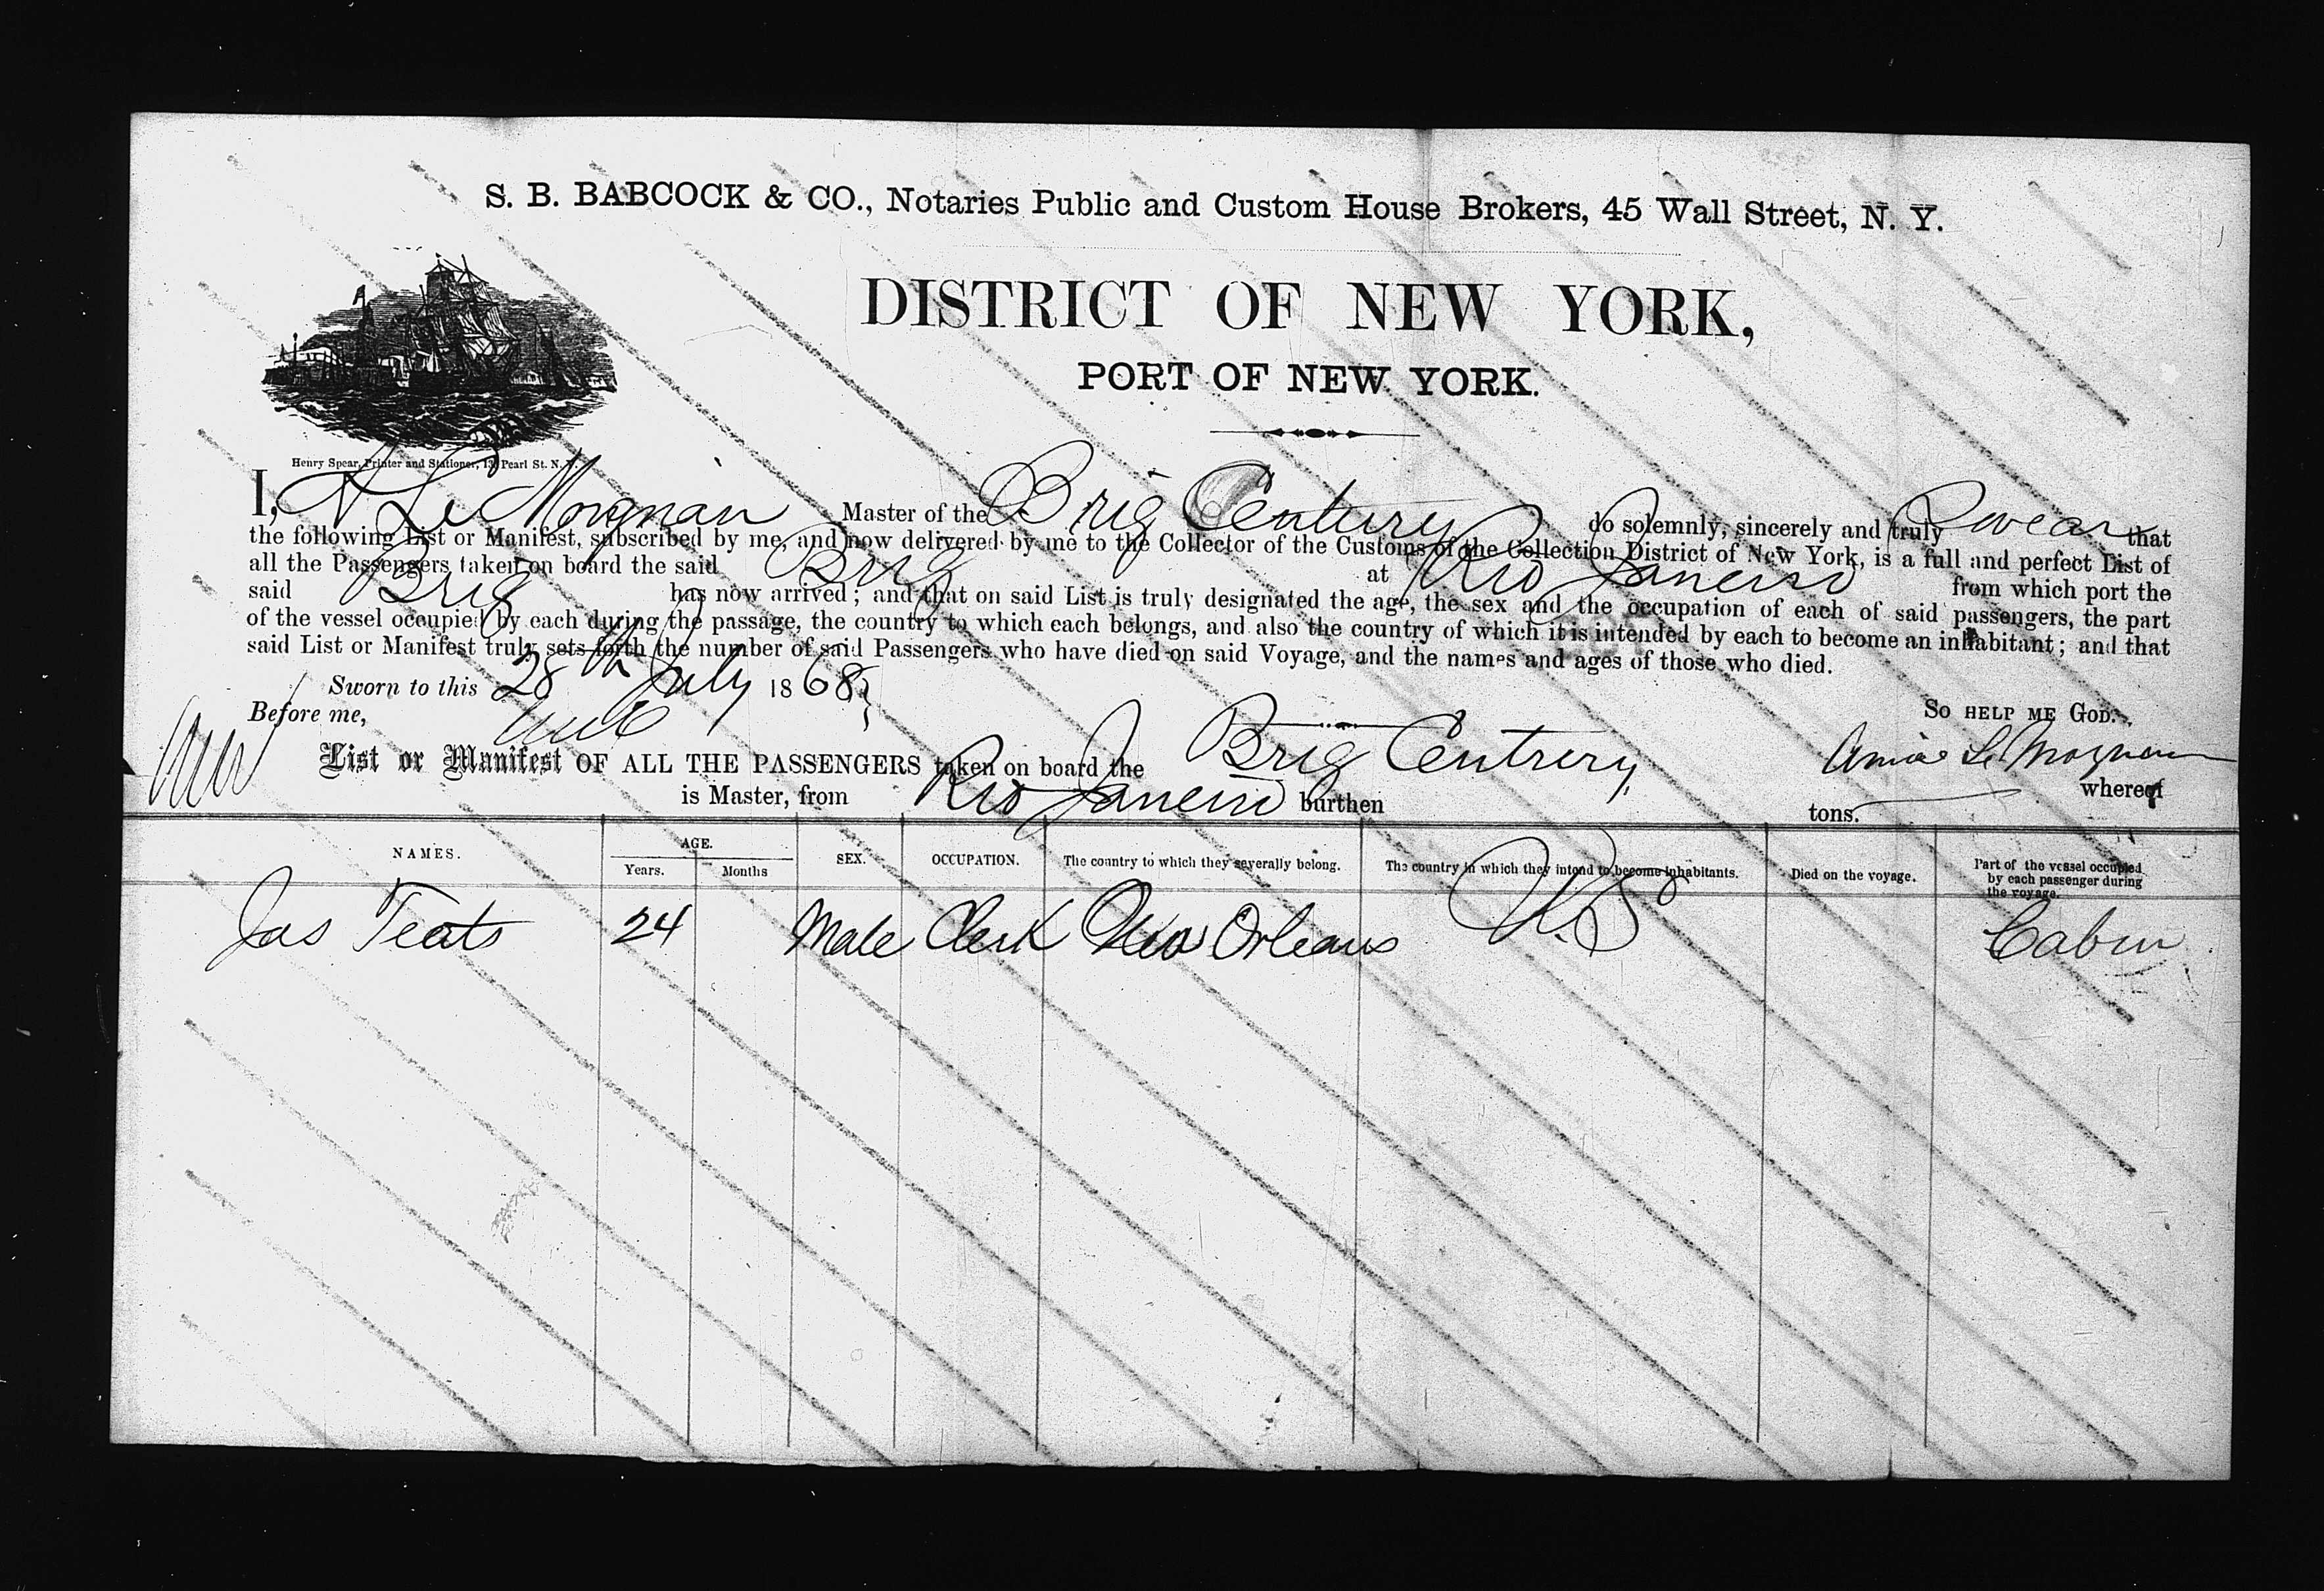 S. B. BABCOCK & CO., Notaries Public and Custom House Brokers, 45 Wall Street, N. Y.
DISTRICT OF NEW YORK,
PORT OF NEW YORK.
Henry Spear, Printer and Stationer, Pearl St. N. Y.
I, A Le Morgnan Master of the Brig Century do solemnly, sincerely and truly Swear that
the following List or Manifest, subscribed by me, and now delivered by me to the Collector of the Customs of the Collection District of New York, is a full and perfect List of
all the Passengers taken on board the said Brig at Rio Janeiro from which port the
said Brig has now arrived; and that on said List is truly designated the age, the sex and the occupation of each of said passengers, the part
of the vessel occupied by each during the passage, the country to which each belongs, and also the country of which it is intended by each to become an inhabitant; and that
said List or Manifest truly sets forth the number of said Passengers who have died on said Voyage, and the names and ages of those who died.
Sworn to this 28th July 1868
So HELP ME GOD.
Before me,
List or Manifest OF ALL THE PASSENGERS taken on board the Brig Centrery, whereof
is Master, from Rio Janeiro burthen tons.
NAMES. AGE. Years. Months SEX. OCCUPATION. The country to which they severally belong. The country in which they intend to become inhabitants. Died on the voyage. Part of the vessel occupied by each passenger during the voyage.
Jas Teats 24 Male Clerk New Orleans U.S. Cabin